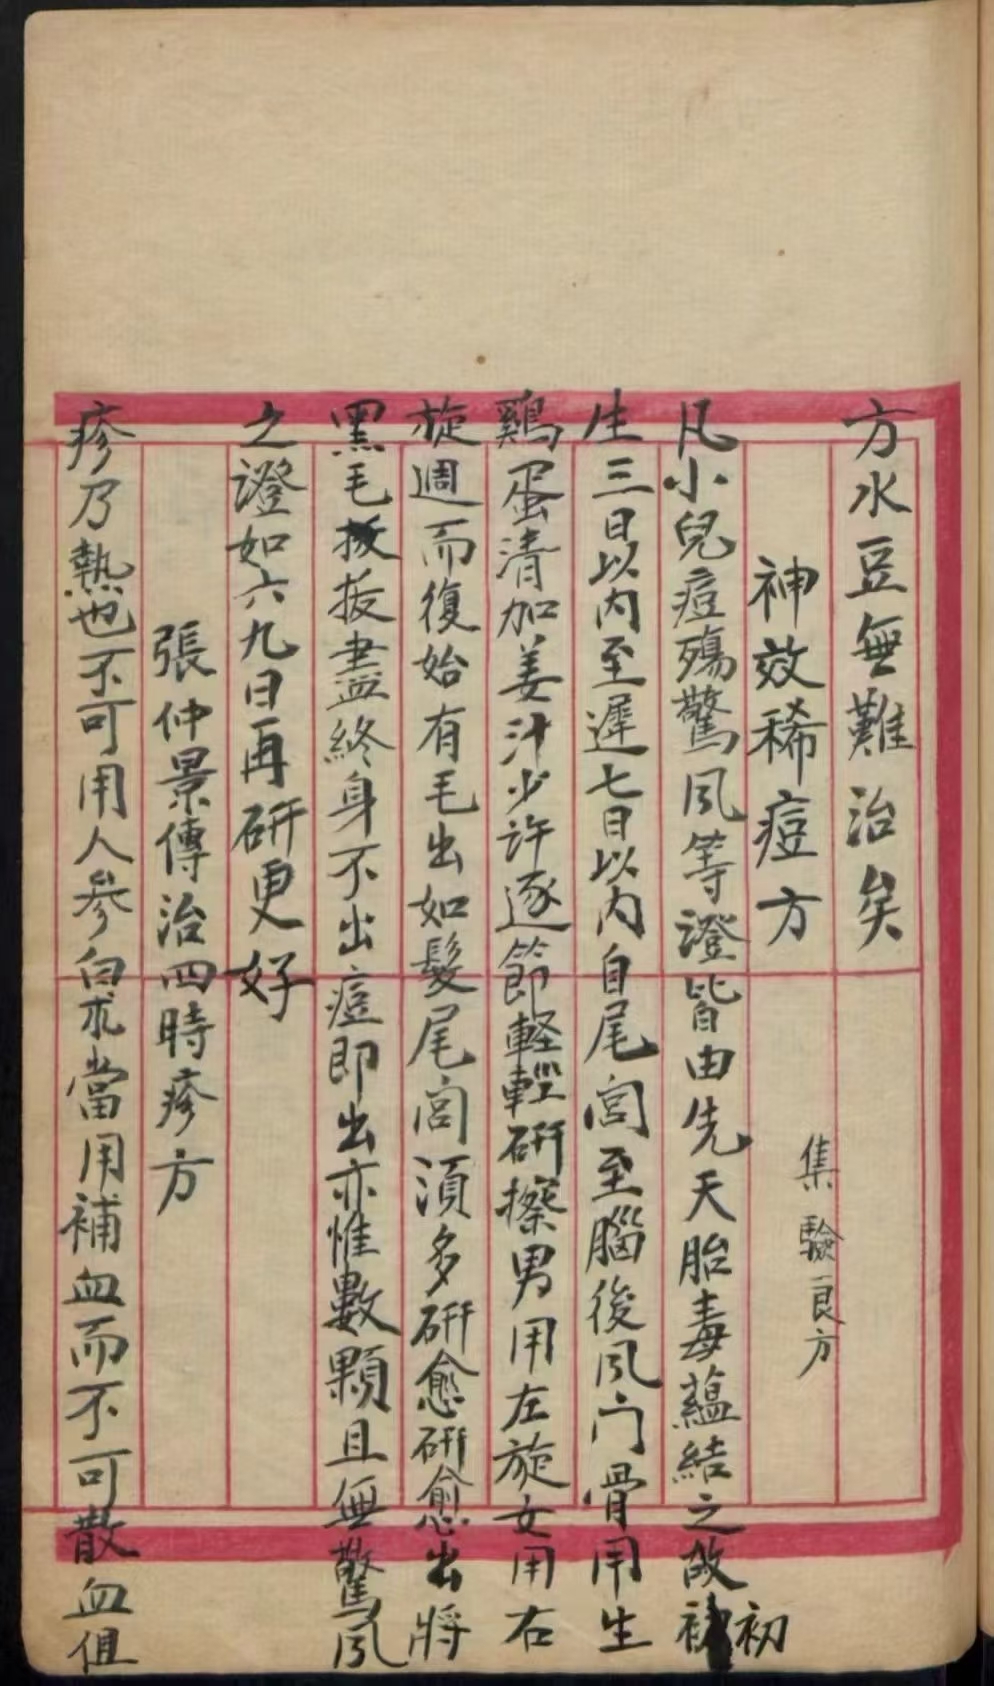 方水豆無難治矣
神效稀痘方
集驗良方
凡小兒痘殤驚风等證皆由先天胎毒蘊結之故初
生三日以内至遲七日以内自尾閭至腦後风门骨用生
鷄蛋清加姜汁少许逐節輕輕研擦男用左旋女用右
旋週而復始有毛出如髮尾閭須多研愈研愈出將
黑毛拔拔盡終身不出痘即出亦惟數顆且無驚风
之證如六九日再研更好
張仲景傳治四時疹方
疹乃熱也不可用人參白术當用補血而不可散血但